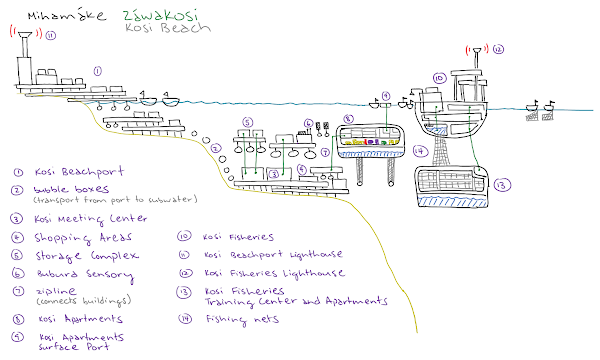 Mihamáke Záwakosi
Kosi Beach
11
1
12
10
9
5
6
8
2
7
14
3
4
13
1 Kosi Beachport
2 bubble boxes
(transport from port to subwater)
3 Kosi Meeting Center
4 Shopping Areas
5 Storage Complex
6 Buburd Sensory
7 zipline
(connects buildings)
8 Kosi Apartments
9 Kosi Apartments
Surface Port
10 Kosi Fisheries
11 Kosi Beachport Lighthouse
12 Kosi Fisheries Lighthouse
13 Kosi Fisheries
Training Center and Apartments
14 Fishing nets